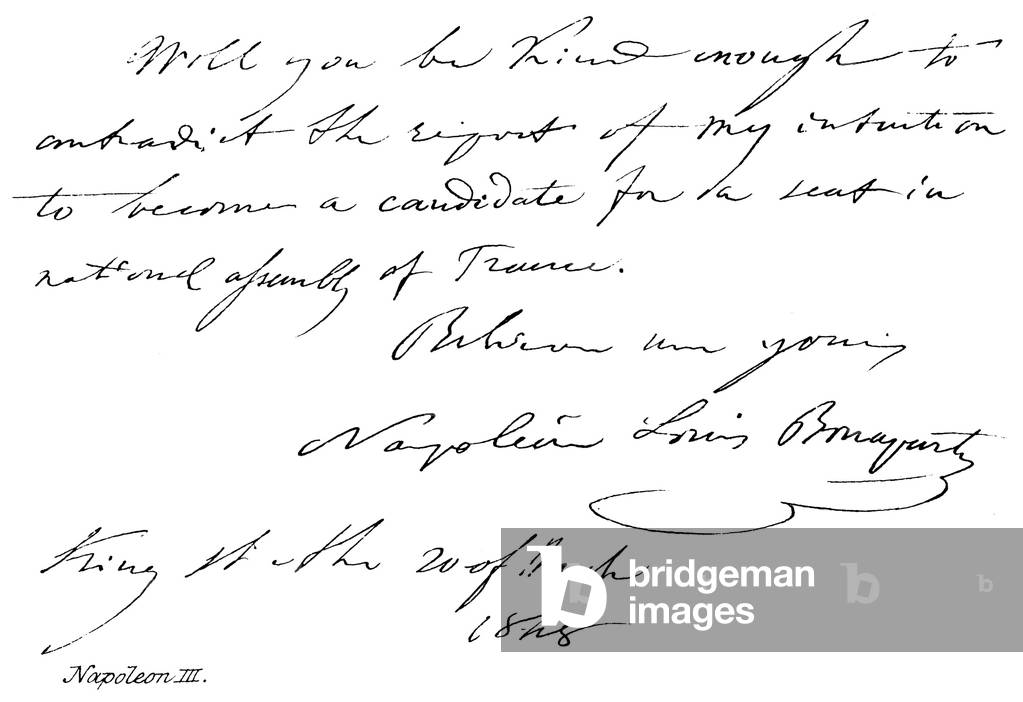 Will you be kind enough to
contradict the report of my intention
to become a candidate for a seat in
national assembly of France.
Believe me yours
Napoleon Louis Bonaparte
King St the 20 of
1848
bridgeman
images
b
b
b
Napoleon III.